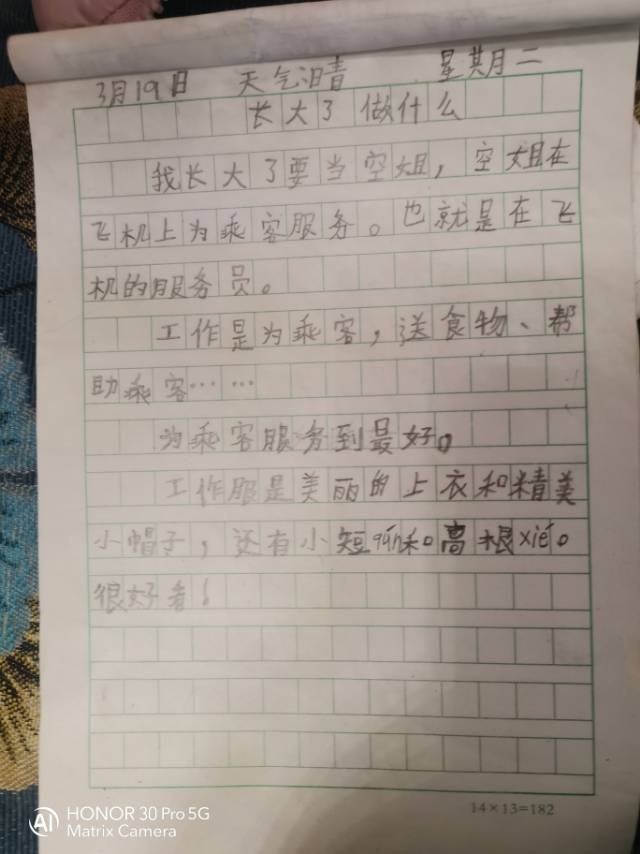 3月19日 天气晴 星期二
长大了做什么
我长大了要当空姐，空姐在
飞机上为乘客服务。也就是在飞
机的服务员。
工作是为乘客，送食物、帮
助乘客……
为乘客服务到最好。
工作服是美丽的上衣和精美
小帽子，还有小短qún和高根xié。
很好看！
14×13=182
HONOR 30 Pro 5G
Matrix Camera